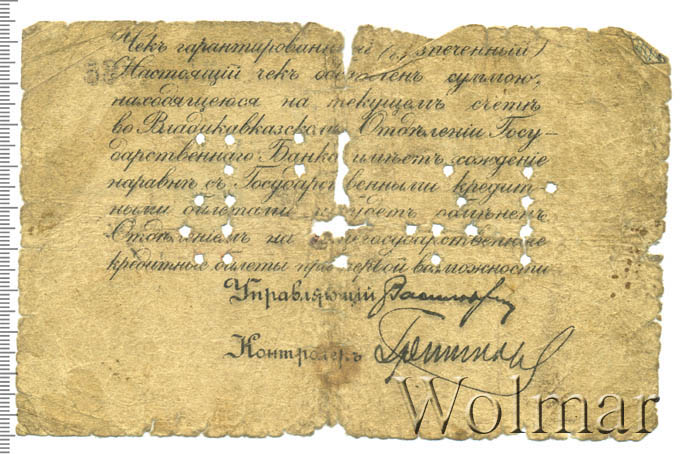 Чекъ гарантированный (обезпеченный)
Настоящій чекъ обезпеченъ суммою,
находящеюся на текущемъ счетѣ
во Владикавказскомъ Отдѣленіи Госу-
дарственнаго Банка имѣетъ хожденіе
наравнѣ съ Государственными кредит-
ными билетами и будетъ обмѣненъ
Отдѣленіемъ на государственные
кредитные билеты при первой возможности
Управляющій
Контролеръ
Wolmar